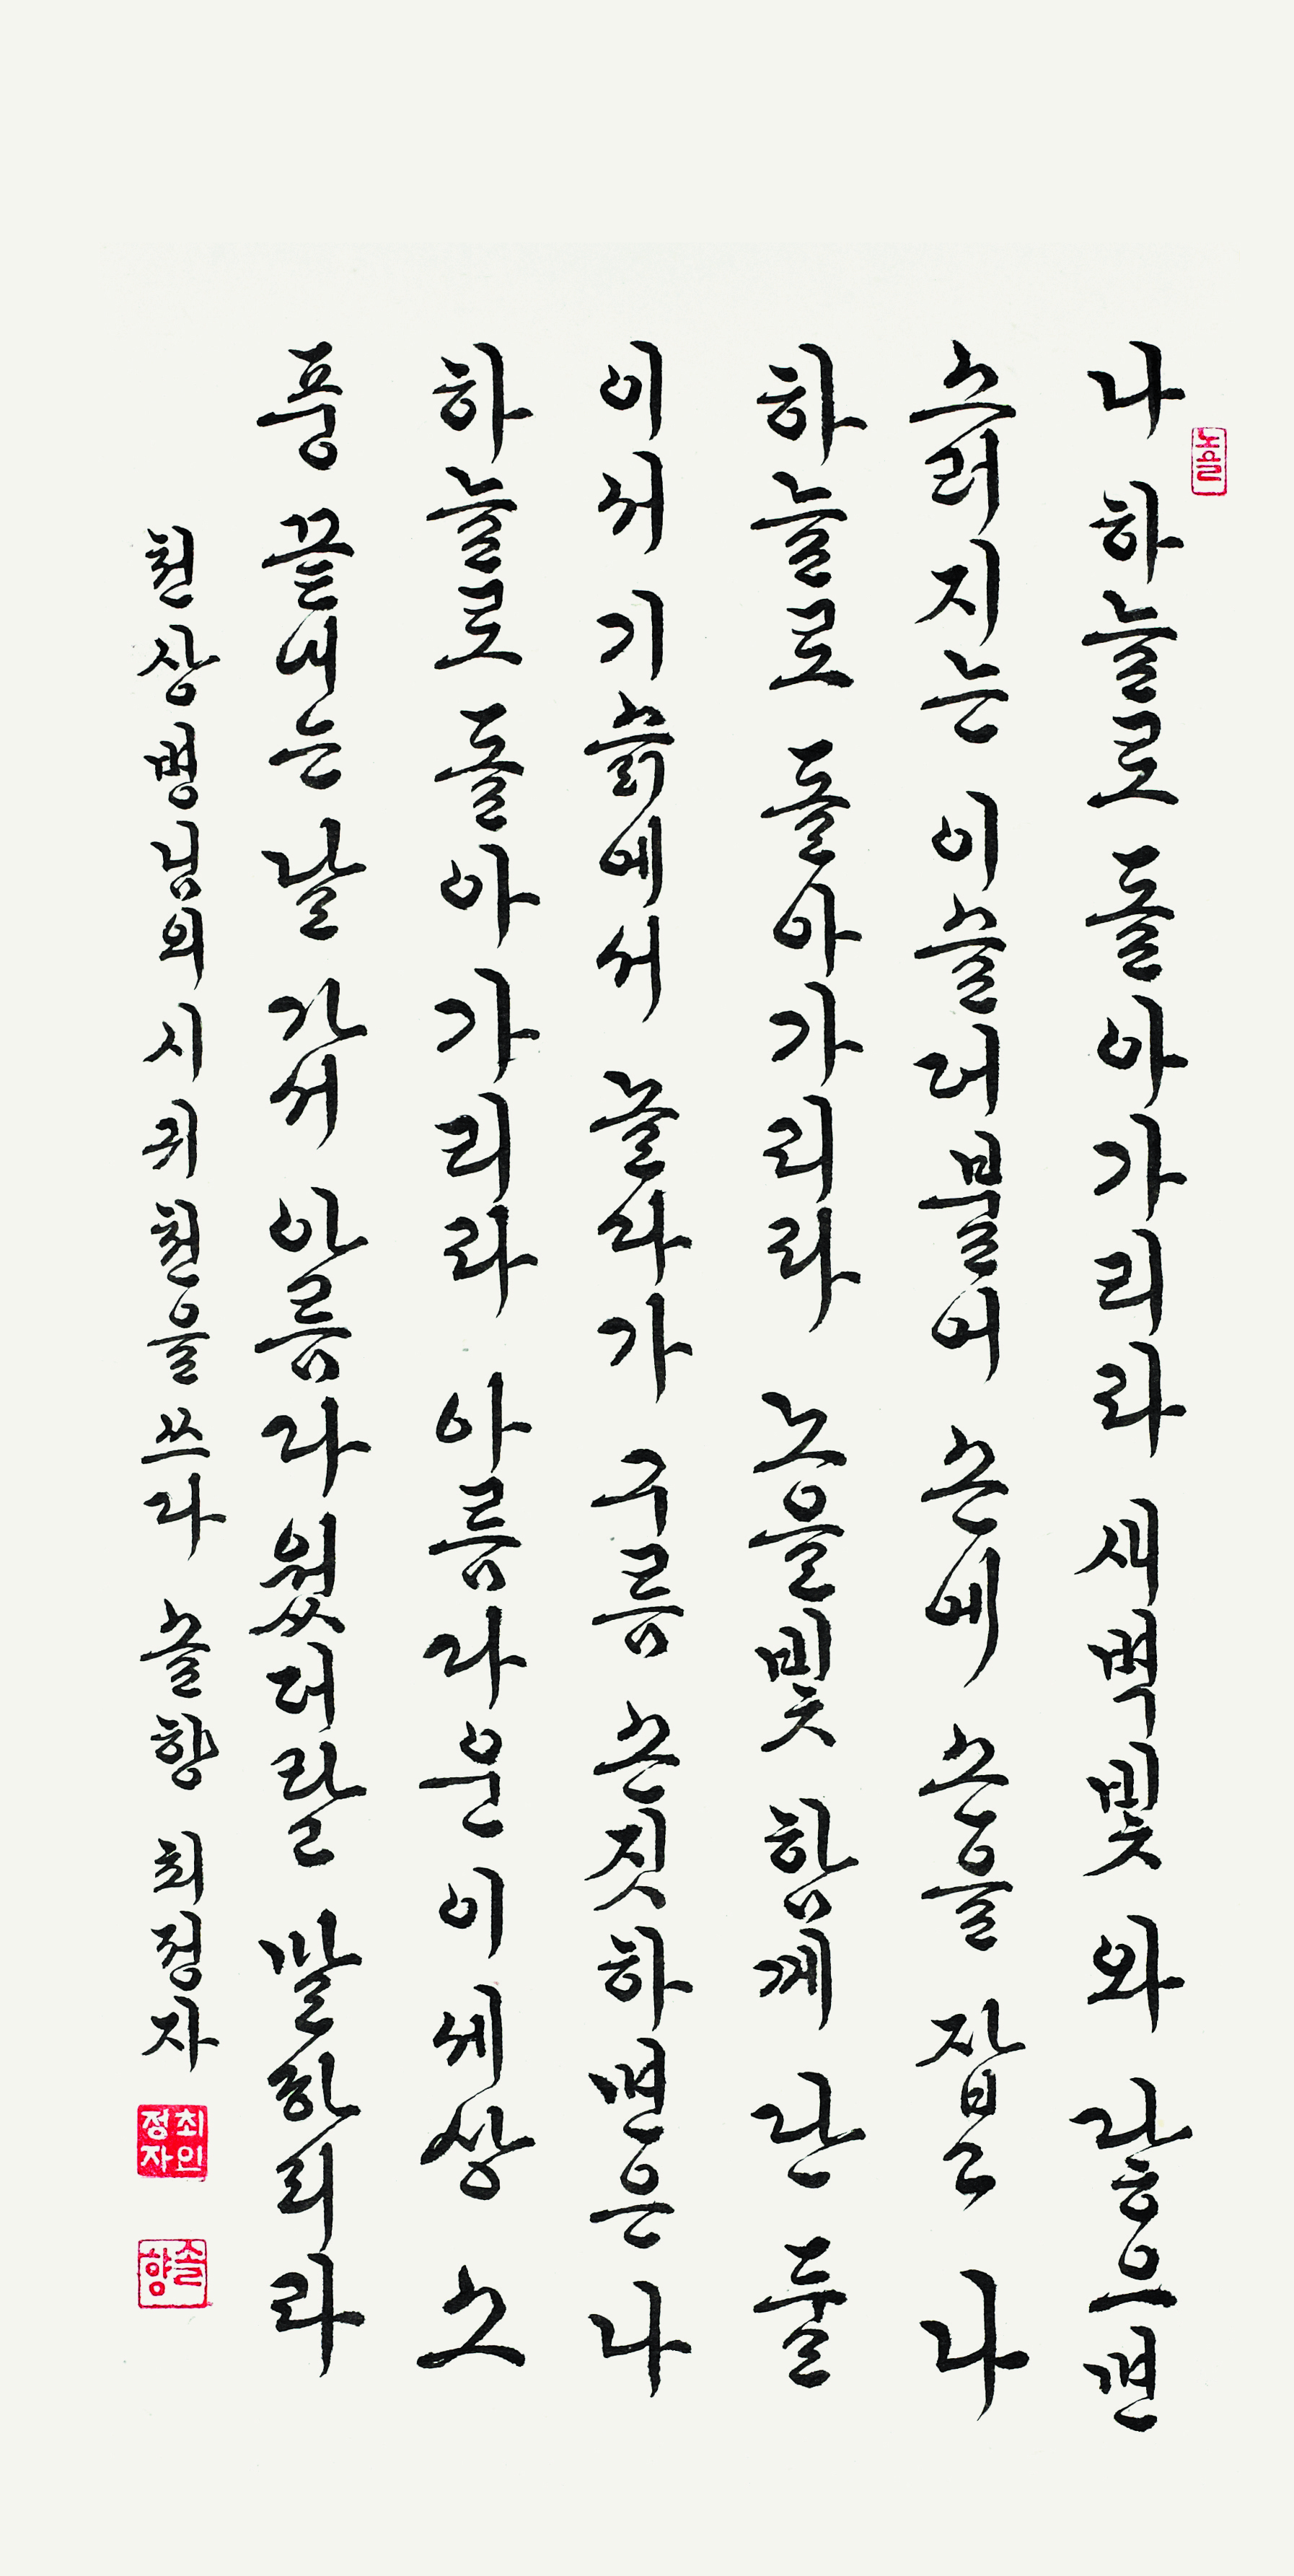 나 하늘로 돌아가리라 새벽빛 와 닿으면
스러지는 이슬 더불어 손에 손을 잡고 나
하늘로 돌아가리라 노을빛 함께 단 둘
이서 기슭에서 놀다가 구름 손짓하면은 나
하늘로 돌아가리라 아름다운 이 세상 소
풍 끝내는 날 가서 아름다웠더라고 말하리라
천상병님의 시 귀천을 쓰다 솔향 최정자
최인
정자
솔향